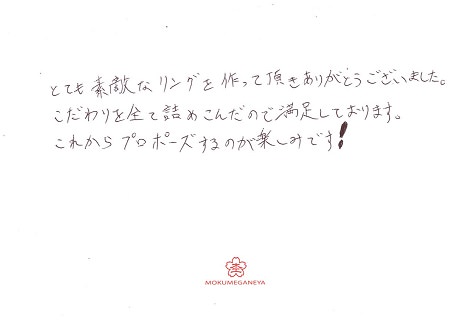 とても素敵なリングを作って頂きありがとうございました。
こだわりを全て詰めこんだので満足しております。
これからプロポーズするのが楽しみです!
MOKUMEGANEYA